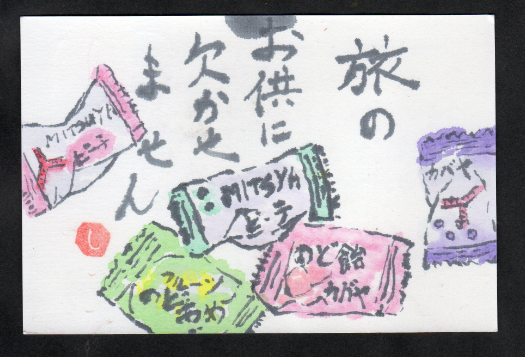 旅の
お供に
欠かせ
ません
MITSUYA
ピーチ
MITSUYA
カバヤ
のど飴
カバヤ
フルーツ
のどあめ
し